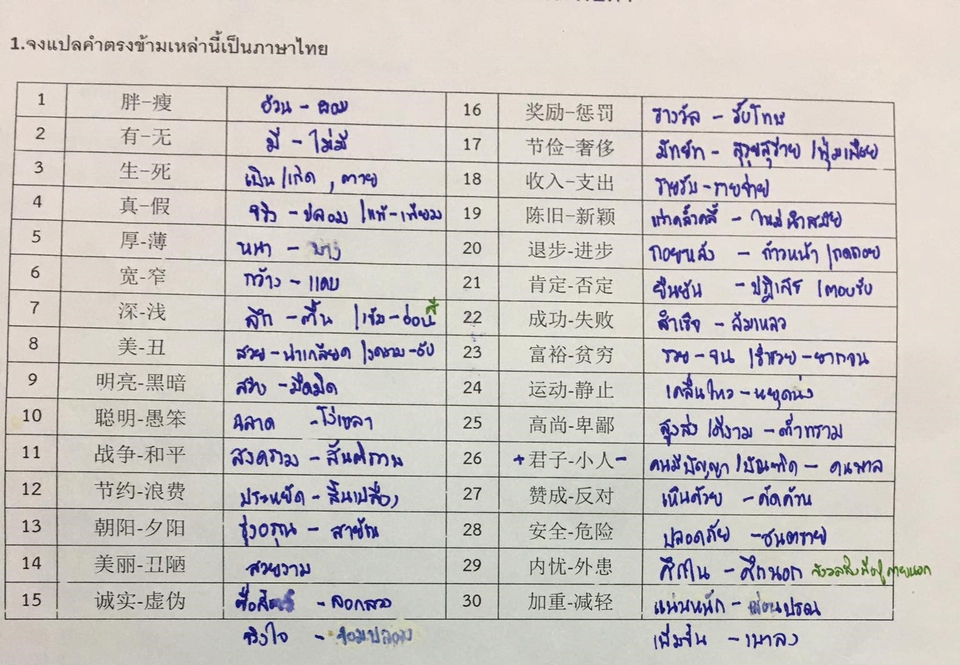 1.จงแปลคำตรงข้ามเหล่านี้เป็นภาษาไทย
1 胖–瘦 อ้วน – ผอม 16 奖励–惩罚 รางวัล – รับโทษ
2 有–无 มี – ไม่มี 17 节俭–奢侈 มัธยัท – สุรุยสุร่าย /ฟุ่มเฟือย
3 生–死 เป็น/เกิด , ตาย 18 收入–支出 รายรับ-รายจ่าย
4 真–假 จริง – ปลอม /แท้-เทียม 19 陈旧–新颖 เก่าคล้ำคลึ้ – ใหม่นำสมัย
5 厚-薄 หนา – บาง 20 退步-进步 ถอยหลัง – ก้าวหน้า /ถดถอย
6 宽-窄 กว้าง – แคบ 21 肯定-否定 ยืนยัน – ปฏิเสธ /ตอบรับ
7 深-浅 ลึก – ตื้น /เข้ม-อ่อน สี 22 成功-失败 สำเร็จ – ล้มเหลว
8 美-丑 สวย – น่าเกลียด /งดงาม- 23 富裕-贫穷 รวย – จน /ร่ำรวย – ยากจน
9 明亮-黑暗 สว่าง – มืดมิด 24 运动-静止 เคลื่อนไหว – หยุดนิ่ง
10 聪明-愚笨 ฉลาด – โง่เขลา 25 高尚-卑鄙 สูงส่ง /ดีงาม – ต่ำทราม
11 战争-和平 สงคราม – สันติภาพ 26 + 君子-小人 – คนมีปัญญา /บัณฑิต – คนพาล
12 节约-浪费 ประหยัด – สิ้นเปลือง 27 赞成-反对 เห็นด้วย – คัดค้าน
13 朝阳-夕阳 รุ่งอรุณ – สายัณ 28 安全-危险 ปลอดภัย –
14 美丽-丑陋 สวยงาม 29 内忧-外患 ศึกใน – ศึกนอก
15 诚实-虚伪 ซื่อสัตย์ – หลอกลวง 30 加重-减轻 แน่นหนัก –
จริงใจ – จอมปลอม เพิ่มขึ้น – เบาลง